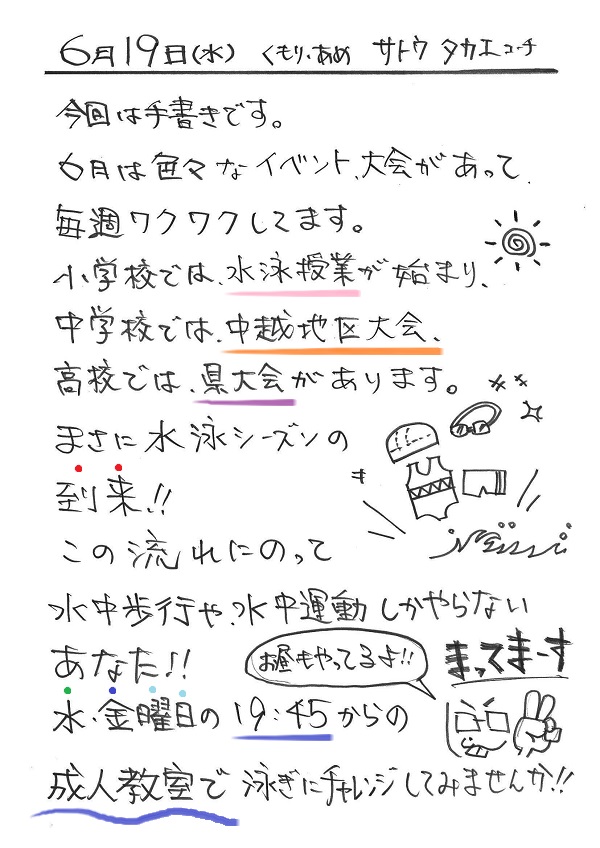 6月19日(水) くもり、あめ サトウ タカエコーチ
今回は手書きです。
6月は色々なイベント、大会があって
毎週ワクワクしてます。
小学校では、水泳授業が始まり、
中学校では、中越地区大会、
高校では、県大会があります。
まさに水泳シーズンの
到来!!
この流れにのって
水中歩行や、水中運動しかやらない
あなた!!
お昼もやってるよ!!
まってまーす
水・金曜日の19:45からの
成人教室で泳ぎにチャレンジしてみませんか!!